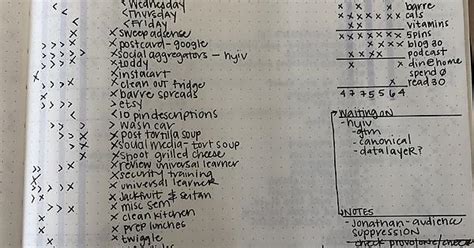 < Wednesday
< Thursday
< Friday
x sweep adsense
x postcard - google
x social aggregators - nyiv
x toddy
x instacart
x clean out fridge
x barre spreads
> etsy
< 10 pin descriptions
> wash car
x post tortilla soup
x social media - tort soup
x shoot grilled cheese
x review universal learner
x security training
x universal learner
x jackfruit & seitan
x misc sem
x clean kitchen
x prep lunches
x twiggle
barre
cals
vitamins
5 pins
blog 30
podcast
din @ home
spend 0
read 30
4 7 7 5 5 6 4
Waiting on
- nyiv
- gtm
- canonical
- data layer?
NOTES
- Jonathan - audience
suppression
- check